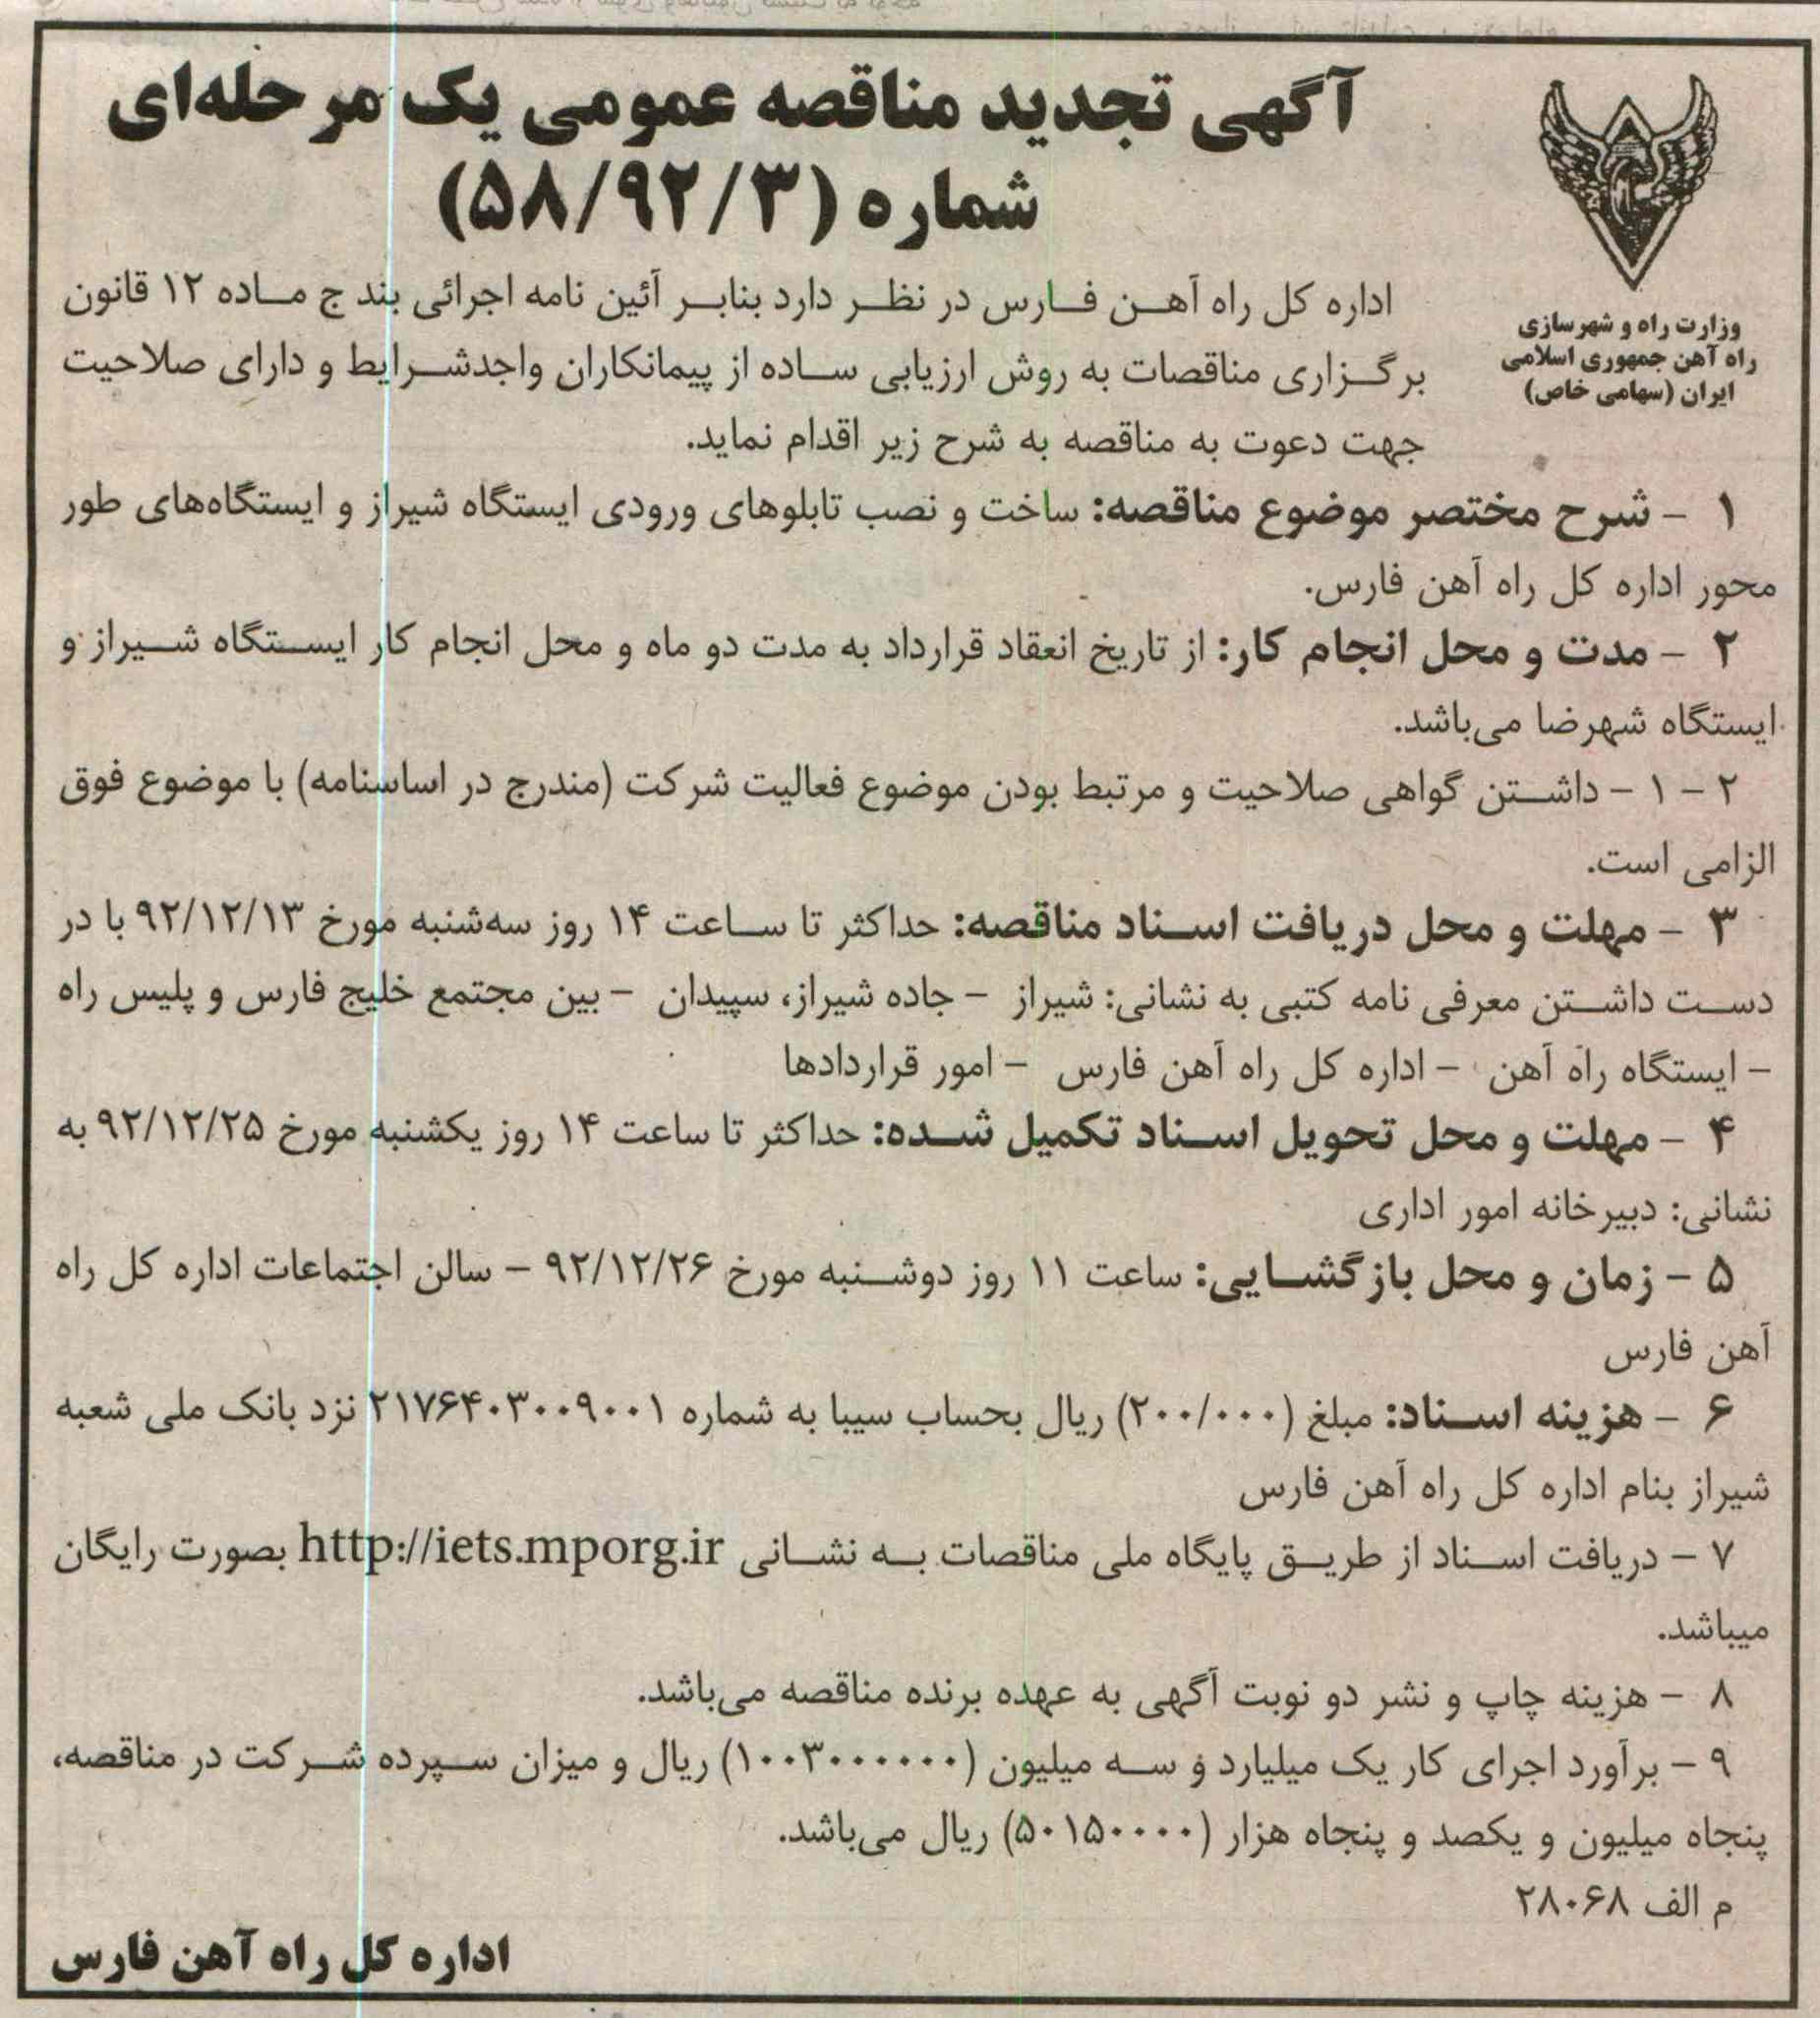 آگهی تجدید مناقصه عمومی یک مرحله‌ای
شماره (۵۸/۹۲/۳)
وزارت راه و شهرسازی
راه آهن جمهوری اسلامی
ایران (سهامی خاص)
اداره کل راه آهن فارس در نظر دارد بنابر آئین نامه اجرائی بند ج ماده ۱۲ قانون
برگزاری مناقصات به روش ارزیابی ساده از پیمانکاران واجدشرایط و دارای صلاحیت
جهت دعوت به مناقصه به شرح زیر اقدام نماید.
۱ - شرح مختصر موضوع مناقصه: ساخت و نصب تابلوهای ورودی ایستگاه شیراز و ایستگاه‌های طور
محور اداره کل راه آهن فارس.
۲ - مدت و محل انجام کار: از تاریخ انعقاد قرارداد به مدت دو ماه و محل انجام کار ایستگاه شیراز و
ایستگاه شهرضا می‌باشد.
۲ - ۱ - داشتن گواهی صلاحیت و مرتبط بودن موضوع فعالیت شرکت (مندرج در اساسنامه) با موضوع فوق
الزامی است.
۳ - مهلت و محل دریافت اسناد مناقصه: حداکثر تا ساعت ۱۴ روز سه‌شنبه مورخ ۹۲/۱۲/۱۳ با در
دست داشتن معرفی نامه کتبی به نشانی: شیراز - جاده شیراز، سپیدان - بین مجتمع خلیج فارس و پلیس راه
- ایستگاه راه آهن - اداره کل راه آهن فارس - امور قراردادها
۴ - مهلت و محل تحویل اسناد تکمیل شده: حداکثر تا ساعت ۱۴ روز یکشنبه مورخ ۹۲/۱۲/۲۵ به
نشانی: دبیرخانه امور اداری
۵ - زمان و محل بازگشایی: ساعت ۱۱ روز دوشنبه مورخ ۹۲/۱۲/۲۶ - سالن اجتماعات اداره کل راه
آهن فارس
۶ - هزینه اسناد: مبلغ (۲۰۰/۰۰۰) ریال بحساب سیبا به شماره ۲۱۷۶۴۰۳۰۰۹۰۰۱ نزد بانک ملی شعبه
شیراز بنام اداره کل راه آهن فارس
۷ - دریافت اسناد از طریق پایگاه ملی مناقصات به نشانی http://iets.mporg.ir بصورت رایگان
میباشد.
۸ - هزینه چاپ و نشر دو نوبت آگهی به عهده برنده مناقصه می‌باشد.
۹ - برآورد اجرای کار یک میلیارد و سه میلیون (۱۰۰۳۰۰۰۰۰۰) ریال و میزان سپرده شرکت در مناقصه،
پنجاه میلیون و یکصد و پنجاه هزار (۵۰۱۵۰۰۰۰) ریال می‌باشد.
م الف ۲۸۰۶۸
اداره کل راه آهن فارس